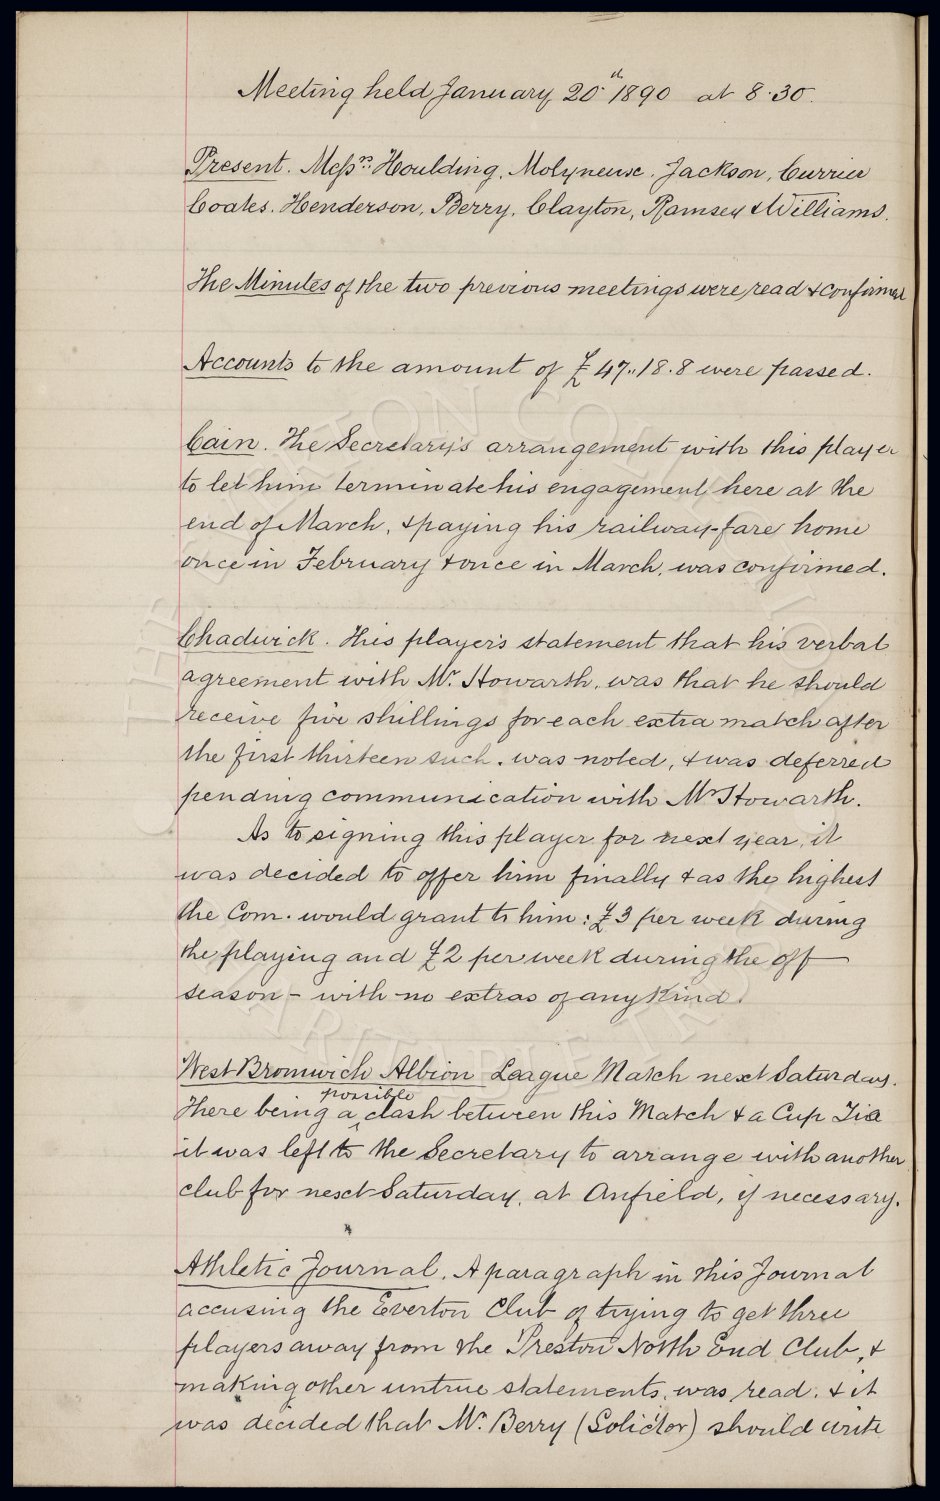 Meeting held January 20th 1890 at 8.30.
Present. Messrs. Houlding, Molyneux, Jackson, Currier
Coates, Henderson, Berry, Clayton, Ramsey & Williams.
The Minutes of the two previous meetings were read & confirmed
Accounts to the amount of £47..18.8 were passed.
Cain. The Secretary's arrangement with this player
to let him terminate his engagement here at the
end of March, & paying his railway-fare home
once in February & once in March, was confirmed.
Chadwick. This player's statement that his verbal
agreement with Mr. Howarth, was that he should
receive five shillings for each extra match after
the first thirteen such, was noted, & was deferred
pending communication with Mr Howarth.
As to signing this player for next year, it
was decided to offer him finally & as the highest
the Com. would grant to him: £3 per week during
the playing and £2 per week during the off
season - with no extras of any kind.
West Bromwich Albion League Match next Saturday.
There being a possible clash between this Match & a Cup Tie
it was left to the Secretary to arrange with another
club for next Saturday, at Anfield, if necessary.
Athletic Journal. A paragraph in this Journal
accusing the Everton Club of trying to get three
players away from the Preston North End Club, &
making other untrue statements, was read, & it
was decided that Mr. Berry (Solicitor) should write
THE EVERTON COLLECTION
CHARITABLE TRUST